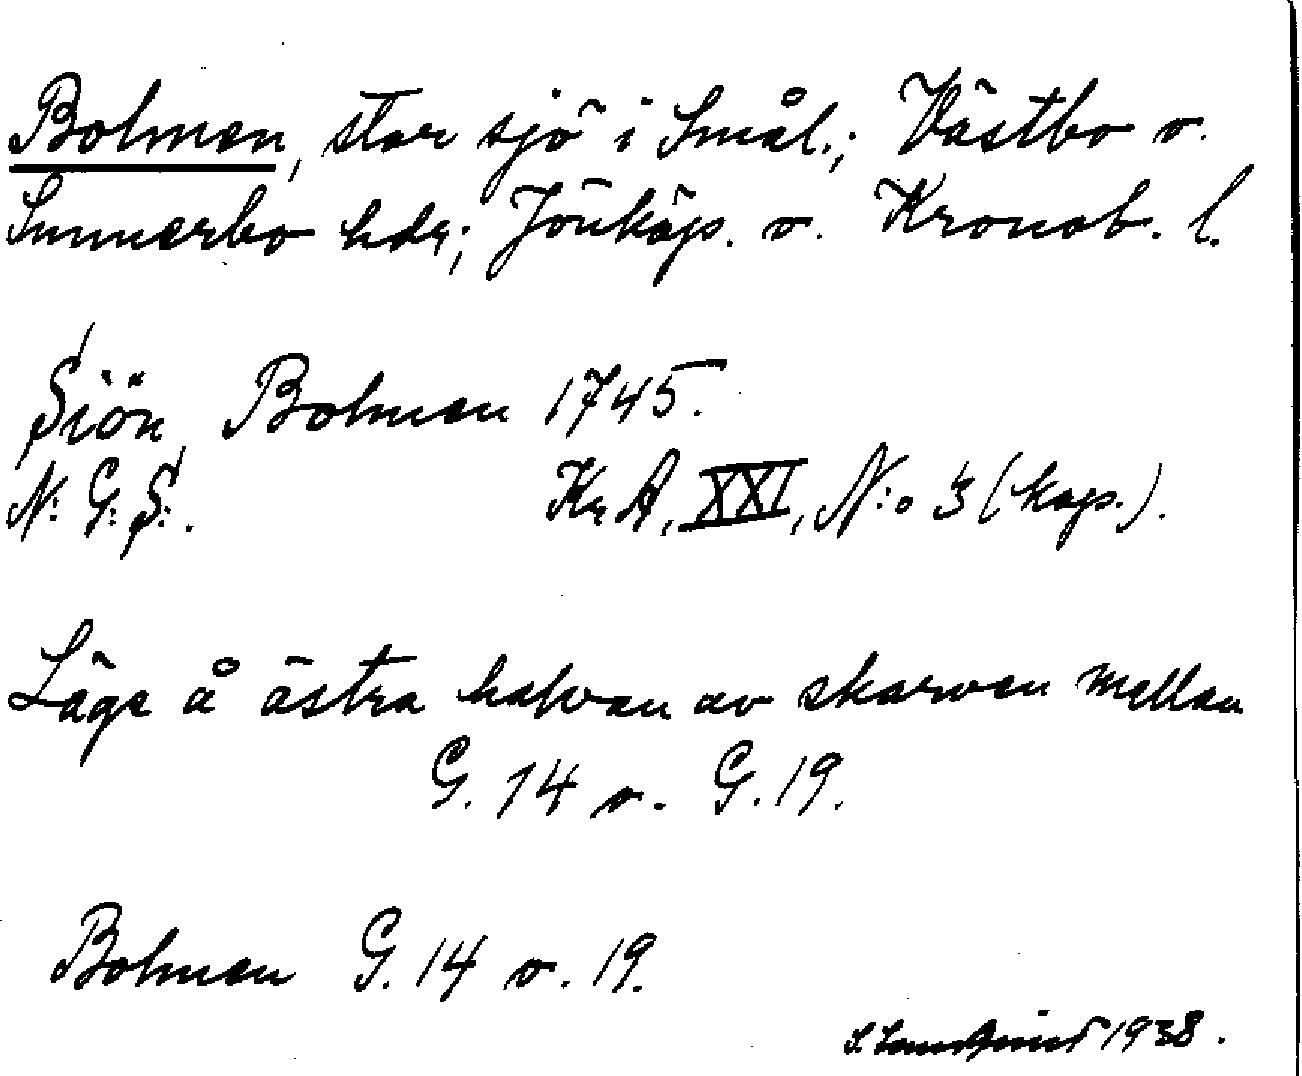 Bolmen, stor sjö i Smål.; Västbo o.
Sunnerbo hdr; Jönköp. o. Kronob. l.
Siön Bolmen 1745.
N: G: S:.
Kr A, XXI, N:o 3 (kop.).
Läge å östra halvan av skarven mellan
G. 14 o. G. 19.
Bolmen G. 14 o. 19.
1938.